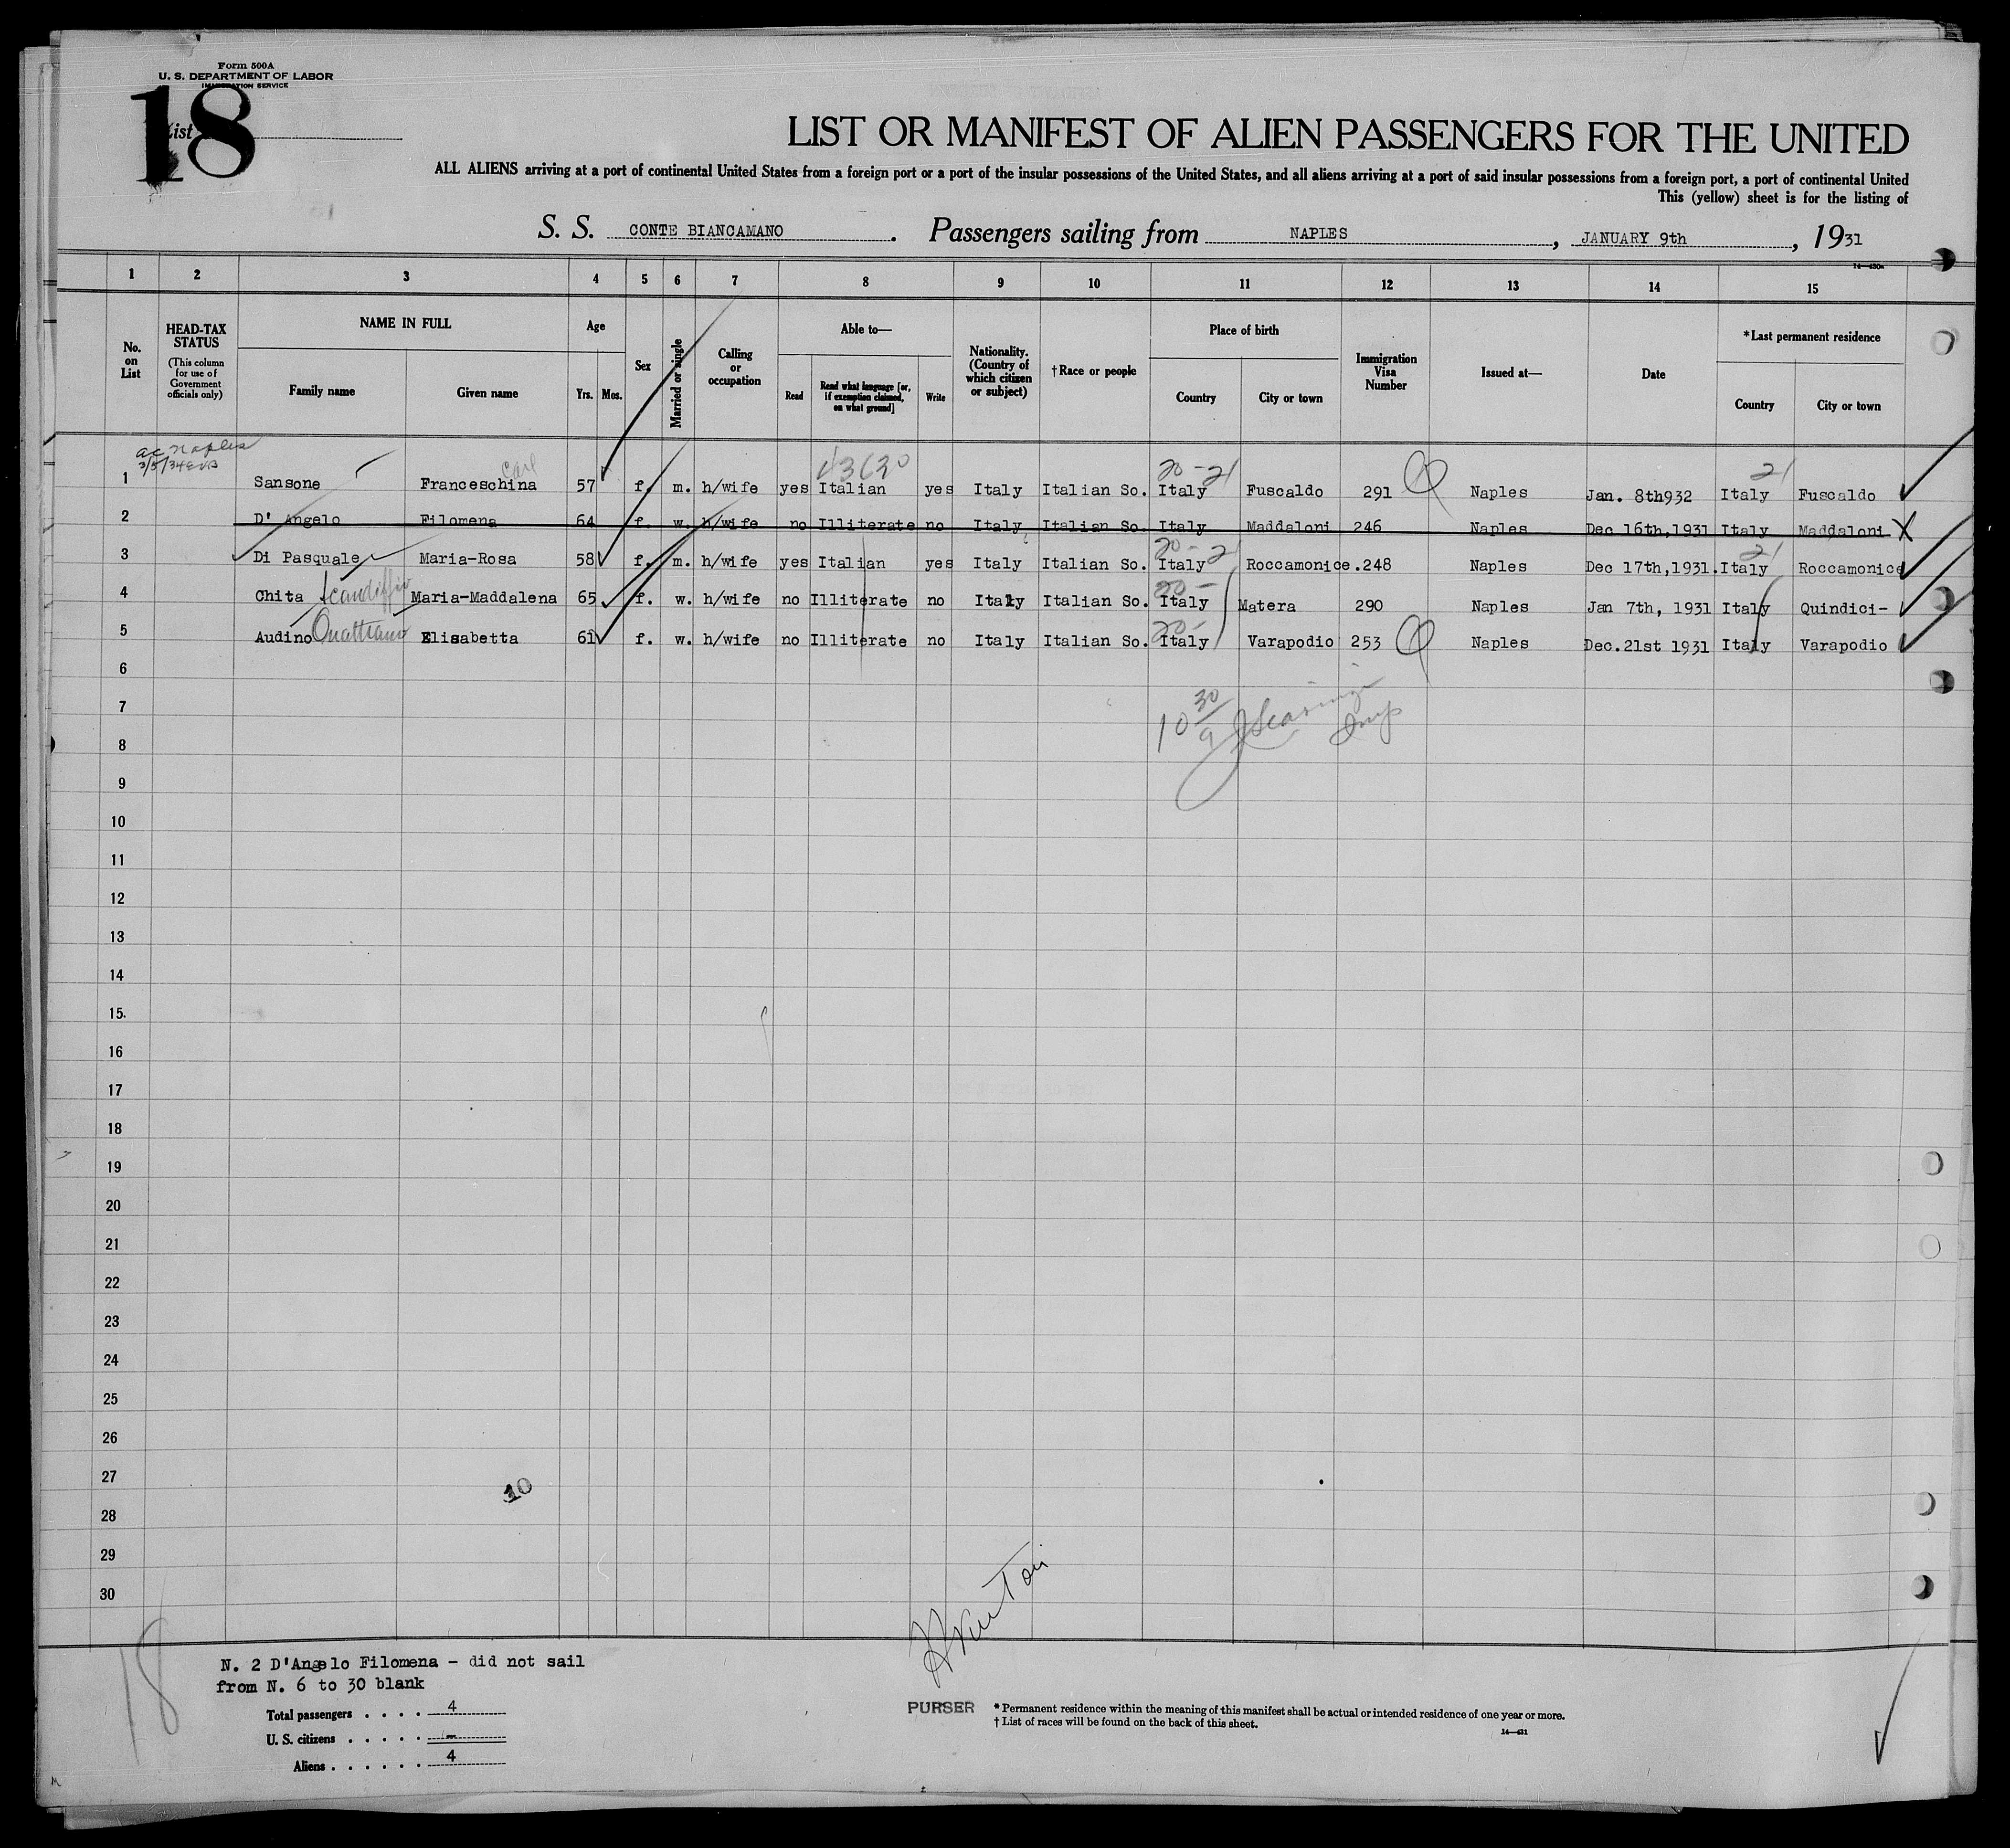 Form 500A
U. S. DEPARTMENT OF LABOR
IMMIGRATION SERVICE
List 18
LIST OR MANIFEST OF ALIEN PASSENGERS FOR THE UNITED
ALL ALIENS arriving at a port of continental United States from a foreign port or a port of the insular possessions of the United States, and all aliens arriving at a port of said insular possessions from a foreign port, a port of continental United
This (yellow) sheet is for the listing of
S. S. CONTE BIANCAMANO. Passengers sailing from NAPLES, JANUARY 9th, 1931
1 2 3 4 5 6 7 8 9 10 11 12 13 14 15
No. on List
HEAD-TAX STATUS
(This column for use of Government officials only)
NAME IN FULL
Family name Given name
Age
Yrs. Mos.
Sex
Married or single
Calling or occupation
Able to—
Read
Read what language [or, if exemption claimed, on what ground]
Write
Nationality. (Country of which citizen or subject)
†Race or people
Place of birth
Country City or town
Immigration Visa Number
Issued at—
Date
*Last permanent residence
Country City or town
ac Naples
43630 20-21 21
1 Sansone Franceschina 57 f. m. h/wife yes Italian yes Italy Italian So. Italy Fuscaldo 291 Naples Jan. 8th932 Italy Fuscaldo
2 D' Angelo Filomena 64 f. w. h/wife no Illiterate no Italy Italian So. Italy Maddaloni 246 Naples Dec 16th,1931 Italy Maddaloni X
20-21 21
3 Di Pasquale Maria-Rosa 58 f. m. h/wife yes Italian yes Italy Italian So. Italy Roccamonice.248 Naples Dec 17th,1931.Italy Roccamonice
20-
4 Chita Scandiffio Maria-Maddalena 65 f. w. h/wife no Illiterate no Italy Italian So. Italy Matera 290 Naples Jan 7th, 1931 Italy Quindici-
20-
5 Audino Quattrano Elisabetta 61 f. w. h/wife no Illiterate no Italy Italian So. Italy Varapodio 253 Naples Dec.21st 1931 Italy Varapodio
6
7
10 30
8
9
10
11
12
13
14
15.
16
17
18
19
20
21
22
23
24
25
26
27
10
28
29
30
18
N. 2 D'Angelo Filomena - did not sail
from N. 6 to 30 blank
Total passengers . . . . 4
U. S. citizens . . . . . -
Aliens . . . . . . 4
PURSER
* Permanent residence within the meaning of this manifest shall be actual or intended residence of one year or more.
† List of races will be found on the back of this sheet.
14—431